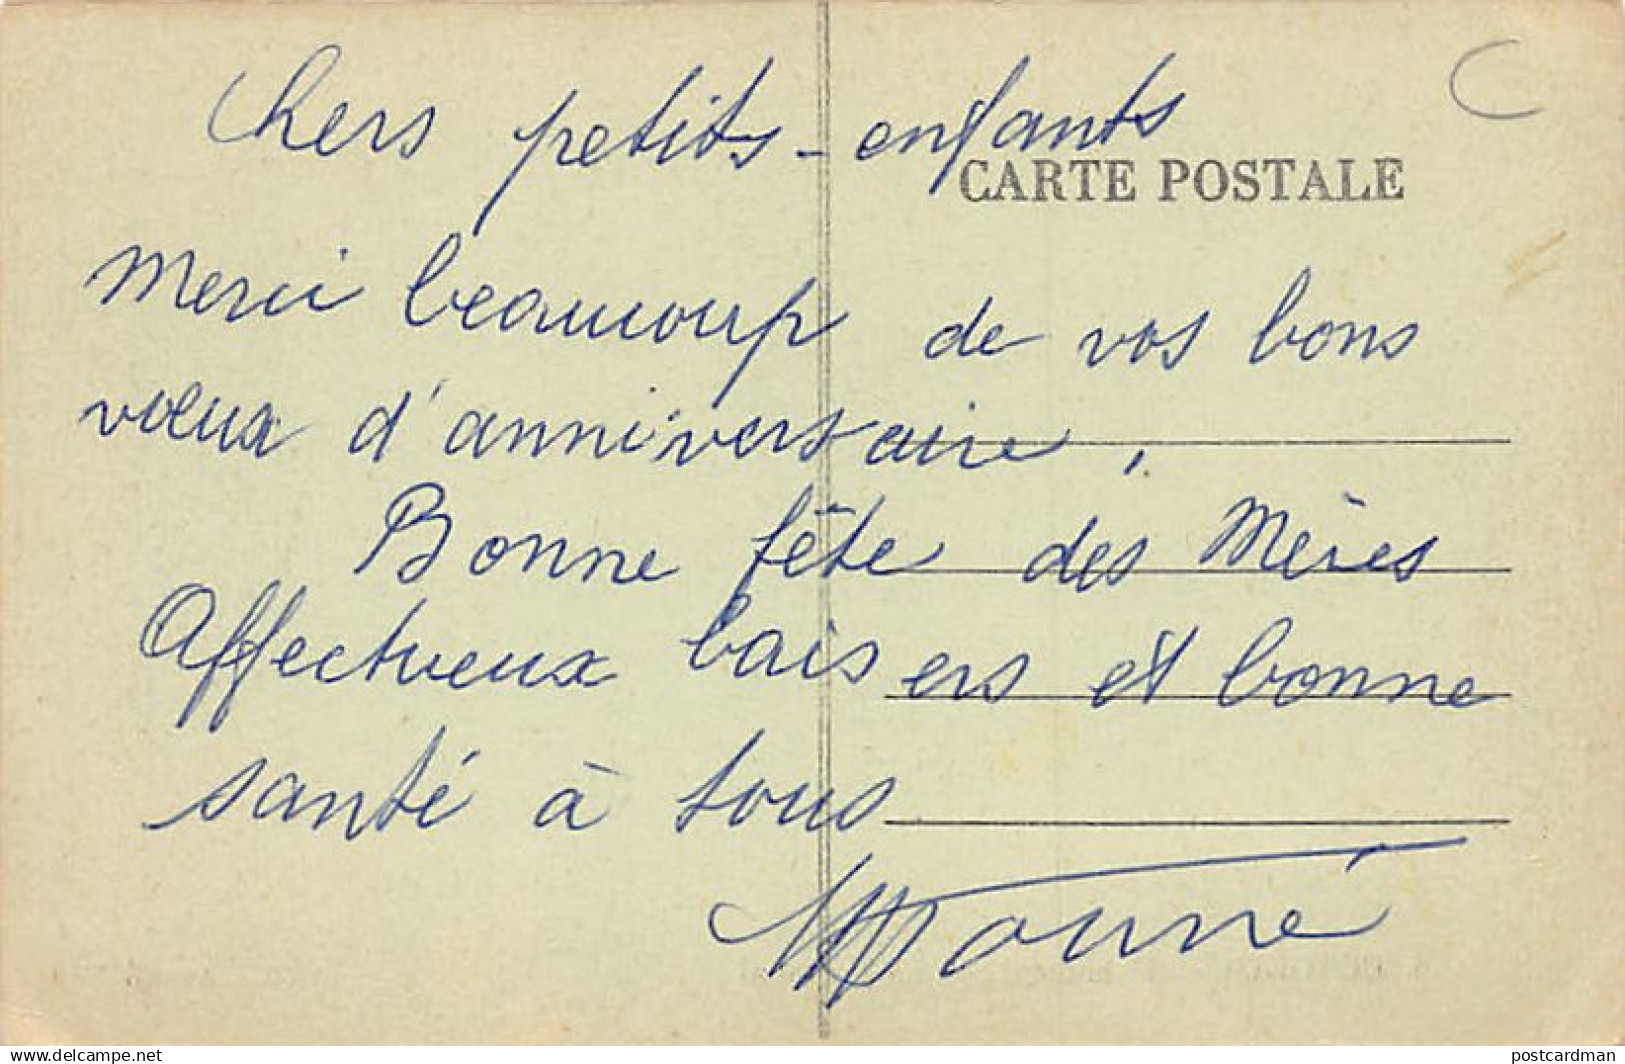 Chers petits-enfants
CARTE POSTALE
Merci beaucoup de vos bons
vœux d'anniversaire,
Bonne fête des Mères
Affectueux baisers et bonne
santé à tous
www.delcampe.net
postcardman